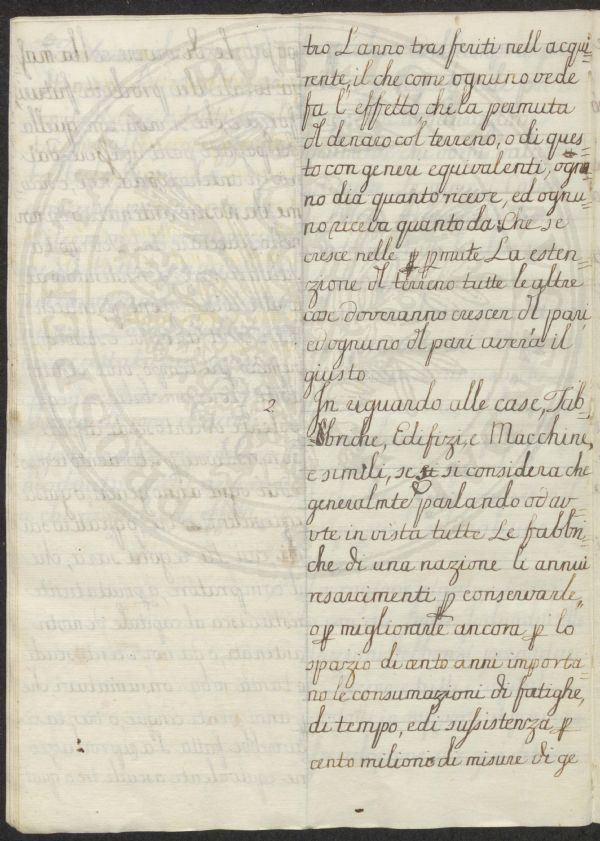 tro L'anno trasferiti nell acqui=
rente, il che come ognuno vede
fa l'effetto, che la permuta
dl denaro col terreno, o di ques=
to con generi equivalenti, ogn
no dia quanto riceve, ed ognu=
no riceva quanto da. Che se
cresce nelle pmute La esten=
zione dl terreno tutte le altre
cose doveranno crescer dl pari
ed ognuno dl pari averà il
giusto
2. In riguardo alle case, Fab=
briche, Edifizi, e Macchine,
e simili, se si considera che
generalmte parlando ed av=
te in vista tutte Le fabbri=
che di una nazione li annui
risarcimenti p conservarle,
o p migliorarle ancora p lo
spazio di cento anni importa=
no le consumazioni di fatighe,
di tempo, e di sussistenza p
cento milioni di misure di ge